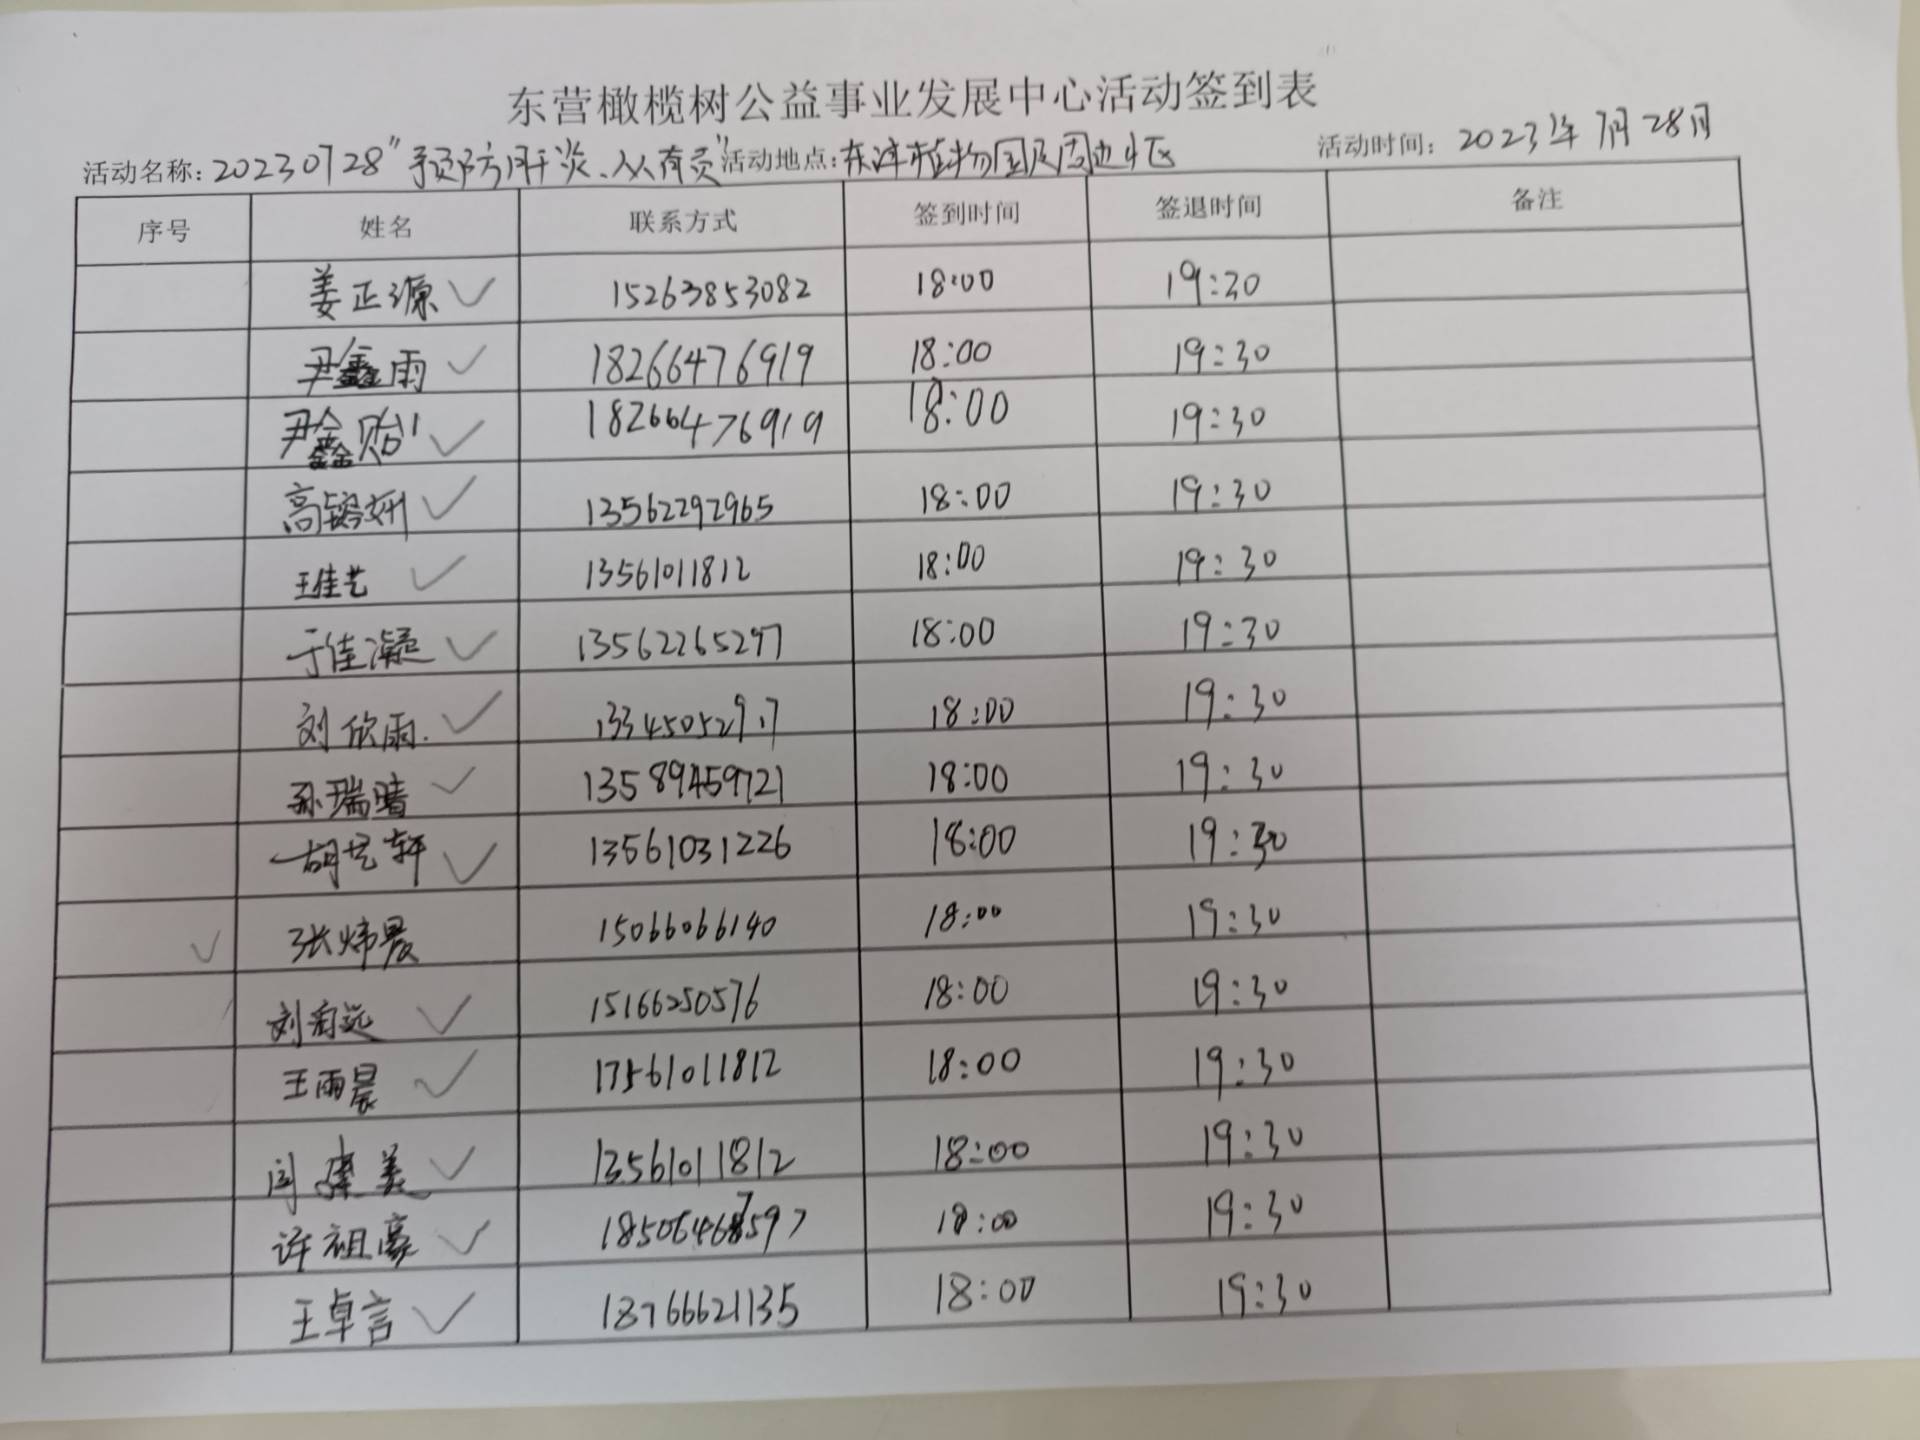 东营橄榄树公益事业发展中心活动签到表
活动名称：20230728"预防肝炎、人人有责" 活动地点：东津植物园及周边小区 活动时间：2023年7月28日
序号 姓名 联系方式 签到时间 签退时间 备注
姜正源 ✓ 15263853082 18:00 19:30
尹鑫雨 ✓ 18266476919 18:00 19:30
尹鑫贻 ✓ 18266476919 18:00 19:30
高镕妍 ✓ 13562292965 18:00 19:30
王佳艺 ✓ 13561011812 18:00 19:30
于佳凝 ✓ 13562265297 18:00 19:30
刘欣雨. ✓ 13345052917 18:00 19:30
孙瑞晴 ✓ 13589459721 18:00 19:30
胡艺轩 ✓ 13561031226 18:00 19:30
✓ 张炜晨 15066066140 18:00 19:30
刘 ✓ 15166250576 18:00 19:30
王雨晨 ✓ 17561011812 18:00 19:30
闫 美 ✓ 13561011812 18:00 19:30
许祖豪 ✓ 18:00 19:30
王卓言 ✓ 18766621135 18:00 19:30